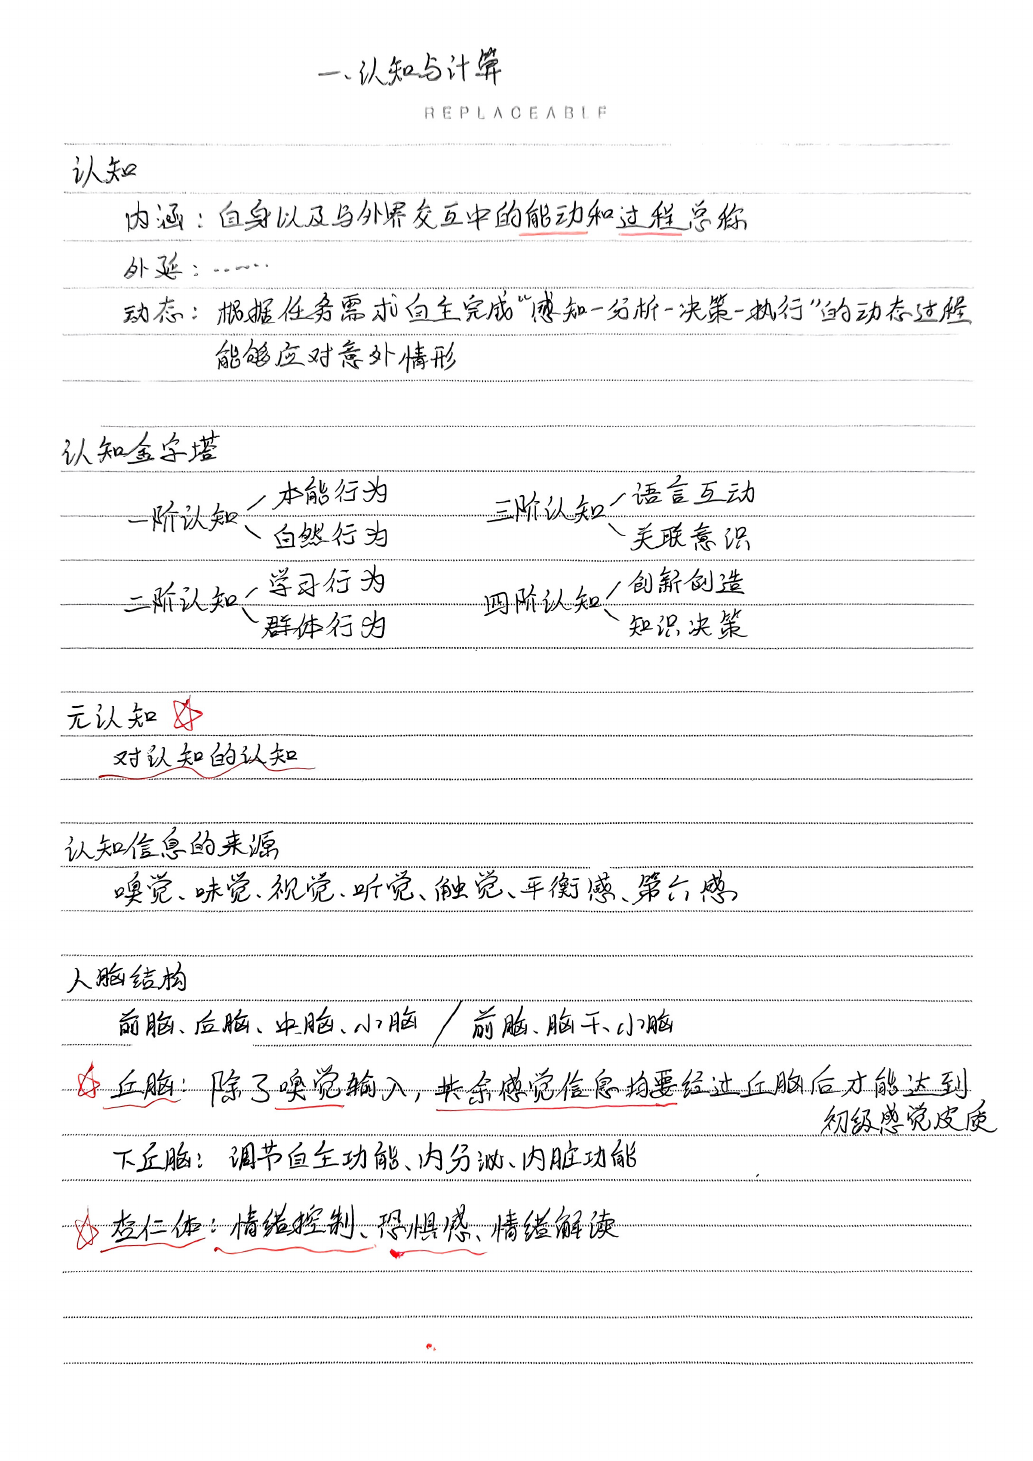 一、认知与计算
REPLACEABLE
认知
内涵：自身以及与外界交互中的能动和过程总称
外延：……
动态：根据任务需求自主完成“感知-分析-决策-执行”的动态过程
能够应对意外情形
认知金字塔
一阶认知 本能行为 自然行为
三阶认知 语言互动 关联意识
二阶认知 学习行为 群体行为
四阶认知 创新创造 知识决策
元认知
对认知的认知
认知信息的来源
嗅觉、味觉、视觉、听觉、触觉、平衡感、第六感
人脑结构
前脑、后脑、中脑、小脑 / 前脑、脑干、小脑
丘脑：除了嗅觉输入，其余感觉信息均要经过丘脑后才能达到
初级感觉皮质
下丘脑：调节自主功能、内分泌、内脏功能
杏仁体：情绪控制、恐惧感、情绪解读